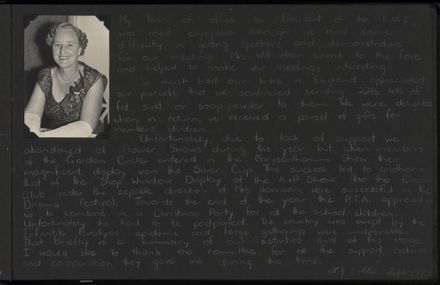 My term of office as President of the Club
was most enjoyable although we had some
difficulty in getting speakers and demonstrators
for our meetings. Mrs Will often came to the fore
and helped to make our meetings interesting.
So much had our links in England appreciated
our parcels that we continued sending 22lbs lots of
fat, suet, or soap-powder to them. We were delighted
when, in return, we received a parcel of gifts for
members children.
Unfortunately, due to lack of support we
abandoned all Flower Shows during the year but when members
of the Garden Circle entered in the Chrysanthemum Show, their
magnificent display won the Silver Cup. This success led to another
that of the Shop Window Display at the A&P Show. Also the Drama
Club under the capable direction of Mrs Harrison were successful in the
Drama Festival. Towards the end of the year the P.T.A. approached
us to combine in a Christmas Party for all the school children.
Unfortunately this had to be postponed. The country was swept by the
Infantile Paralysis epidemic and large gatherings were undesirable.
That briefly is a summary of our activities and at this stage
I would like to thank the committee for all the support, advice
and co-operation they gave me during this time.